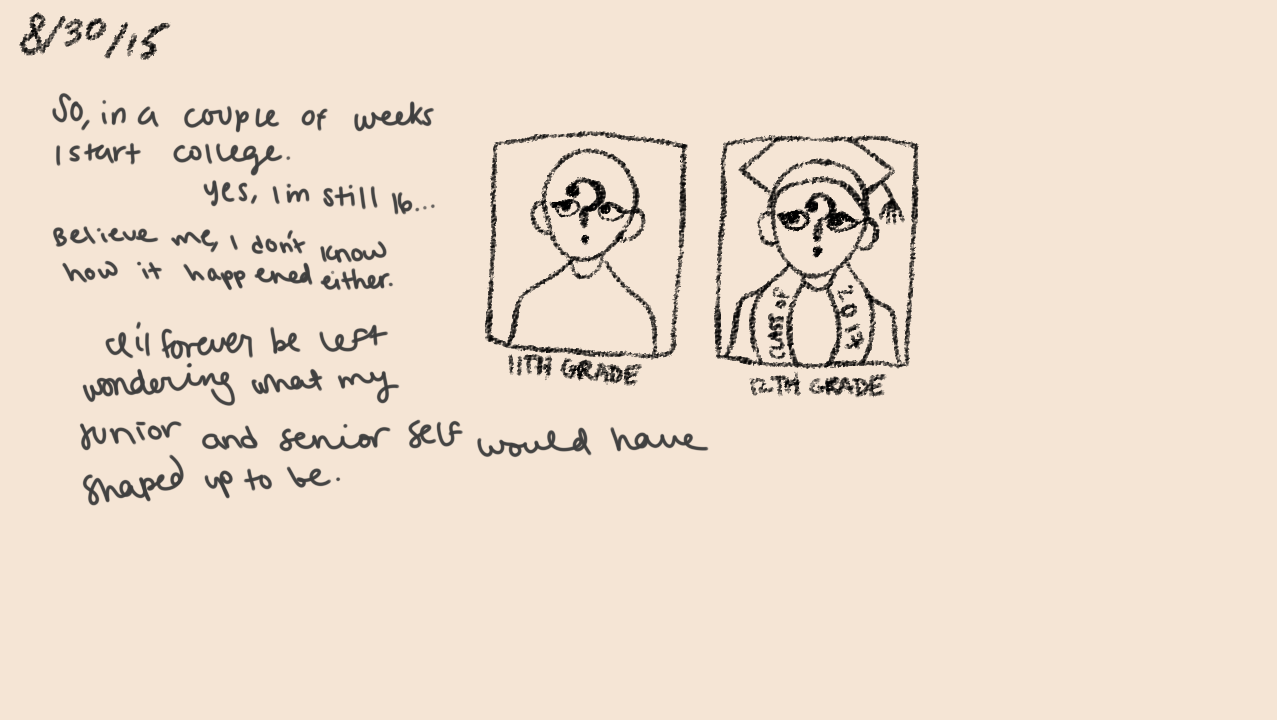 8/30/15
So, in a couple of weeks
I start college.
yes, I'm still 16...
Believe me, I don't know
how it happened either.
I'll forever be left
wondering what my
junior and senior self would have
shaped up to be.
?
11TH GRADE
?
CLASS OF
201
12TH GRADE